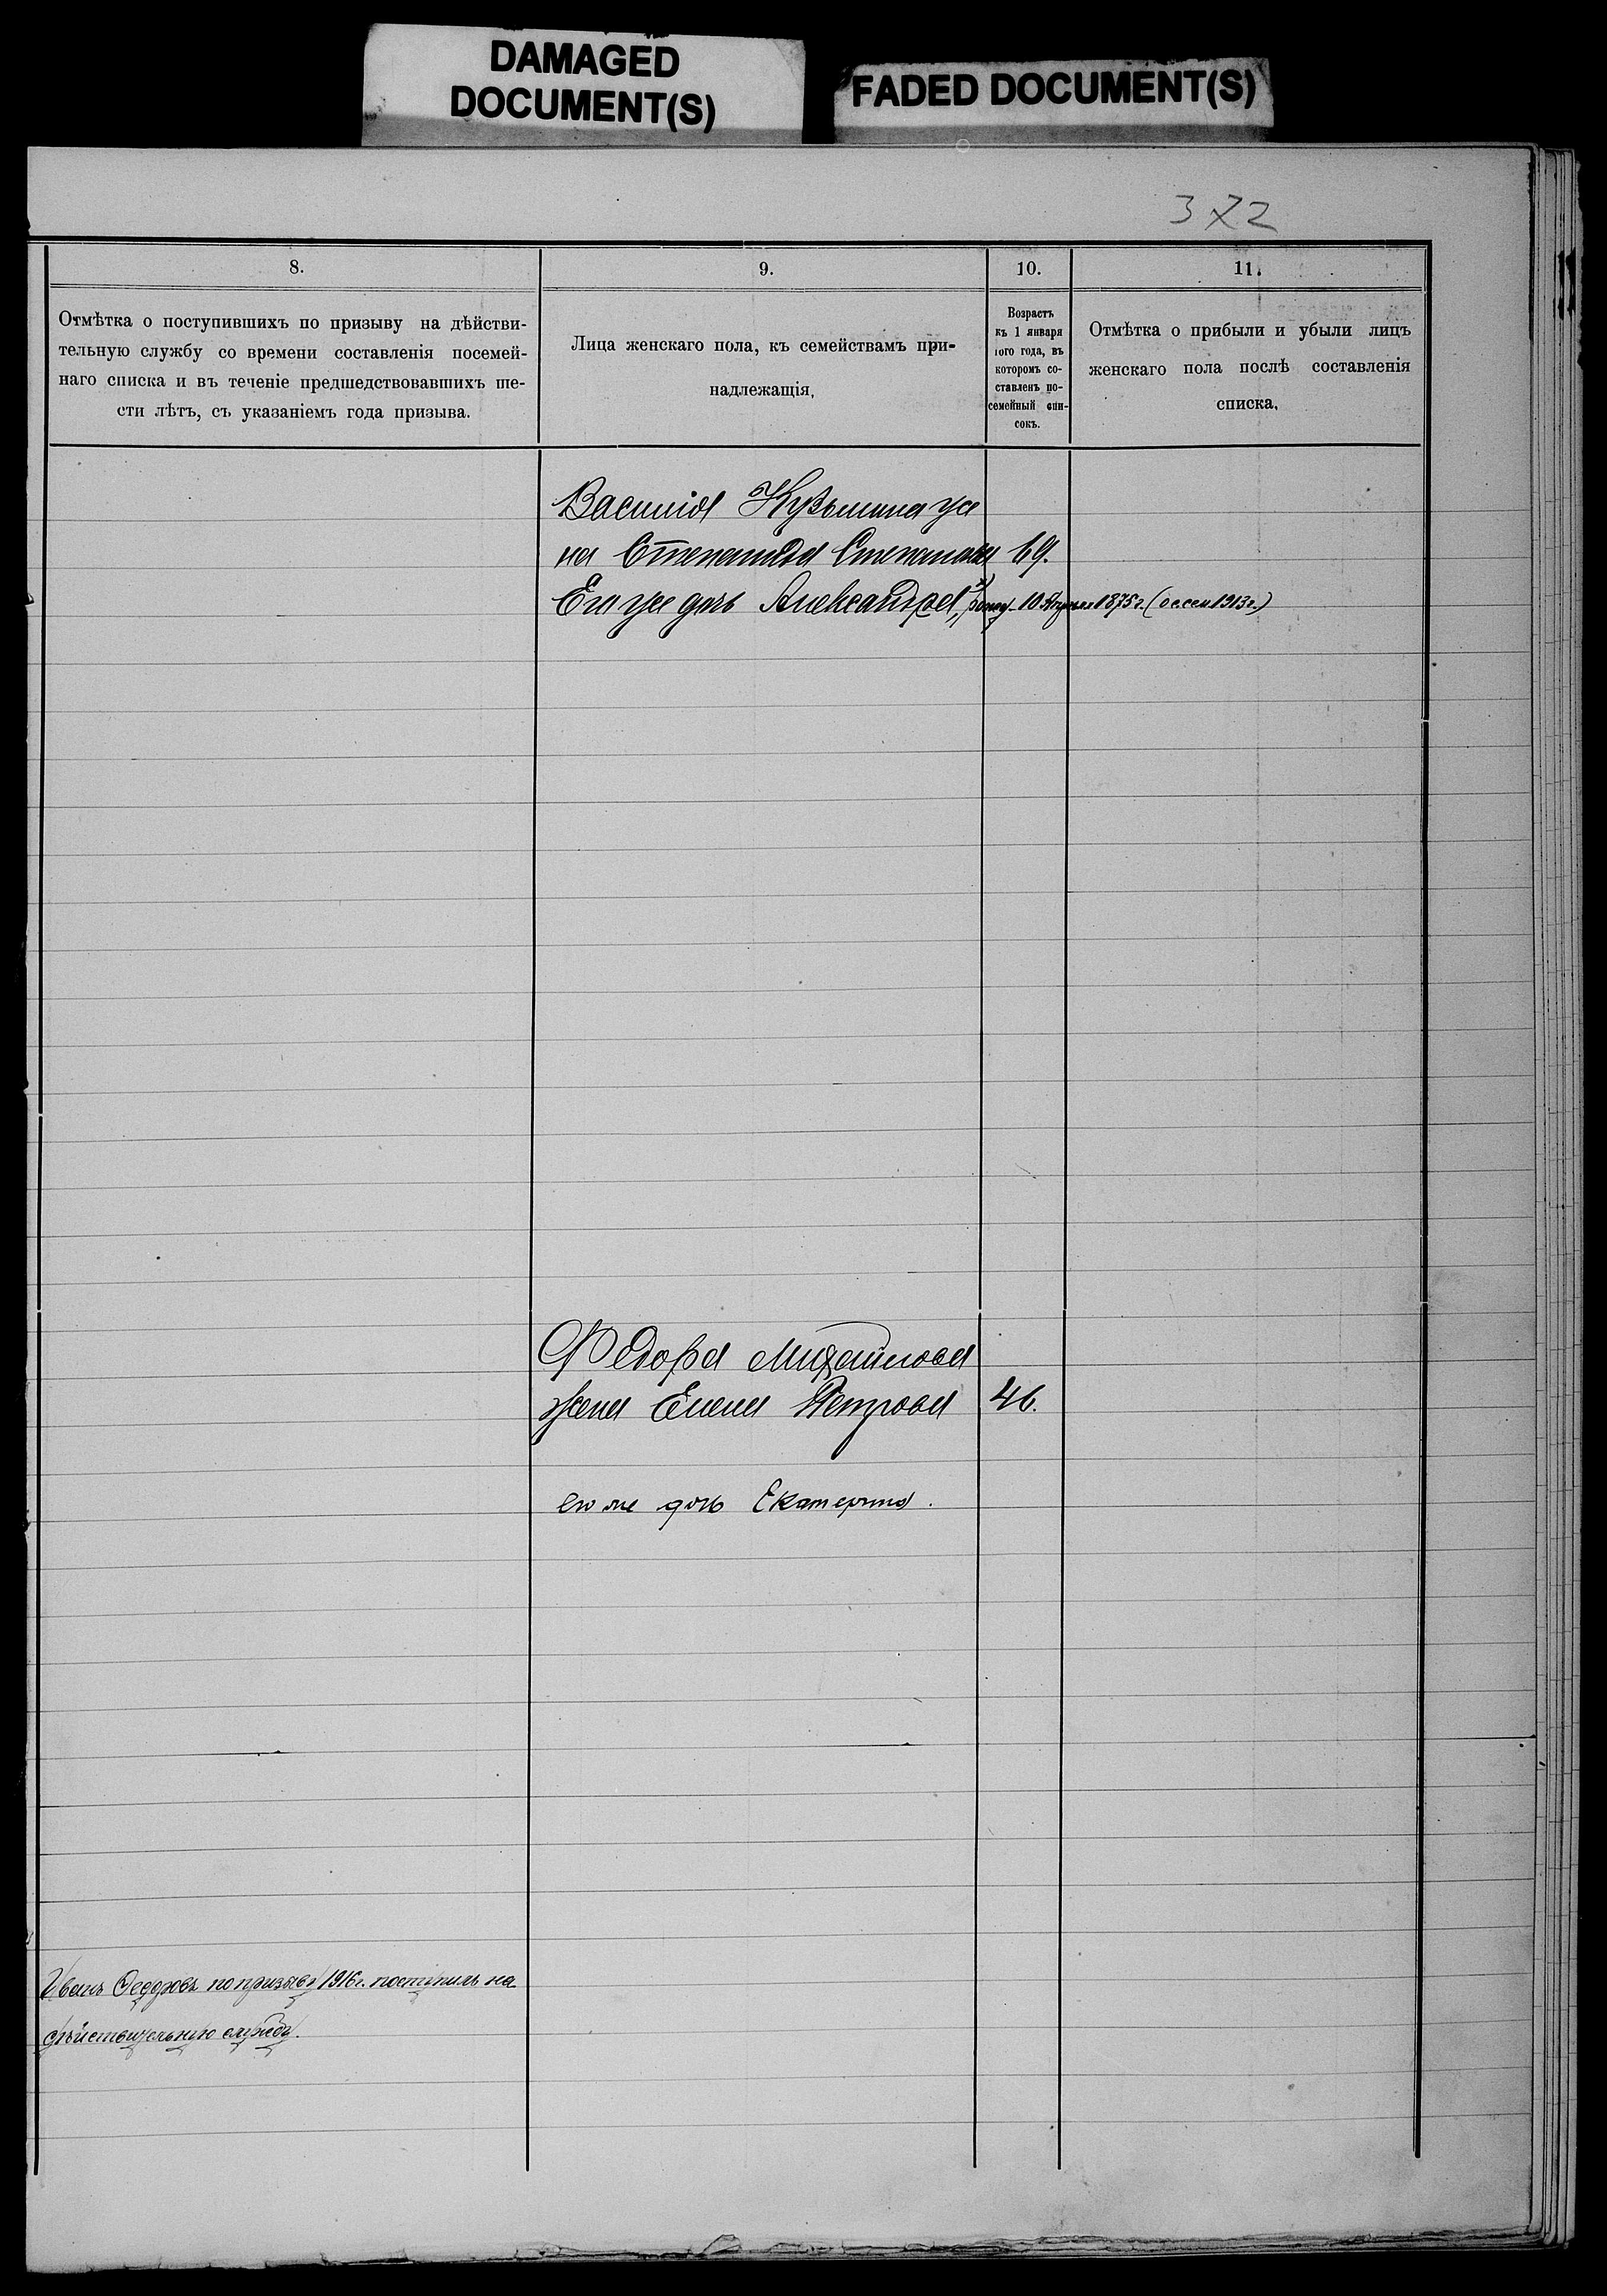 DAMAGED
DOCUMENT(S)
FADED DOCUMENT(S)
372
8.
9.
10.
11.
Отмѣтка о поступившихъ по призыву на дѣйстви-
тельную службу со времени составленія посемей-
наго списка и въ теченіе предшедствовавшихъ ше-
сти лѣтъ, съ указаніемъ года призыва.
Лица женскаго пола, къ семействамъ при-
надлежащія,
Возрастъ
къ 1 января
того года, въ
которомъ со-
ставленъ по-
семейный спи-
сокъ.
Отмѣтка о прибыли и убыли лицъ
женскаго пола послѣ составленія
списка.
Василія Кузьмина же
на Степанида Степанова 69.
Его же дочь Александра, 10 Апрѣля 1875 г. 1913 г.)
Федора Михайлова
жена Елена Петрова 46.
его же дочь Екатерина.
Иванъ Федоровъ по призыву 1916 г. поступилъ на
дѣйствительную службу.